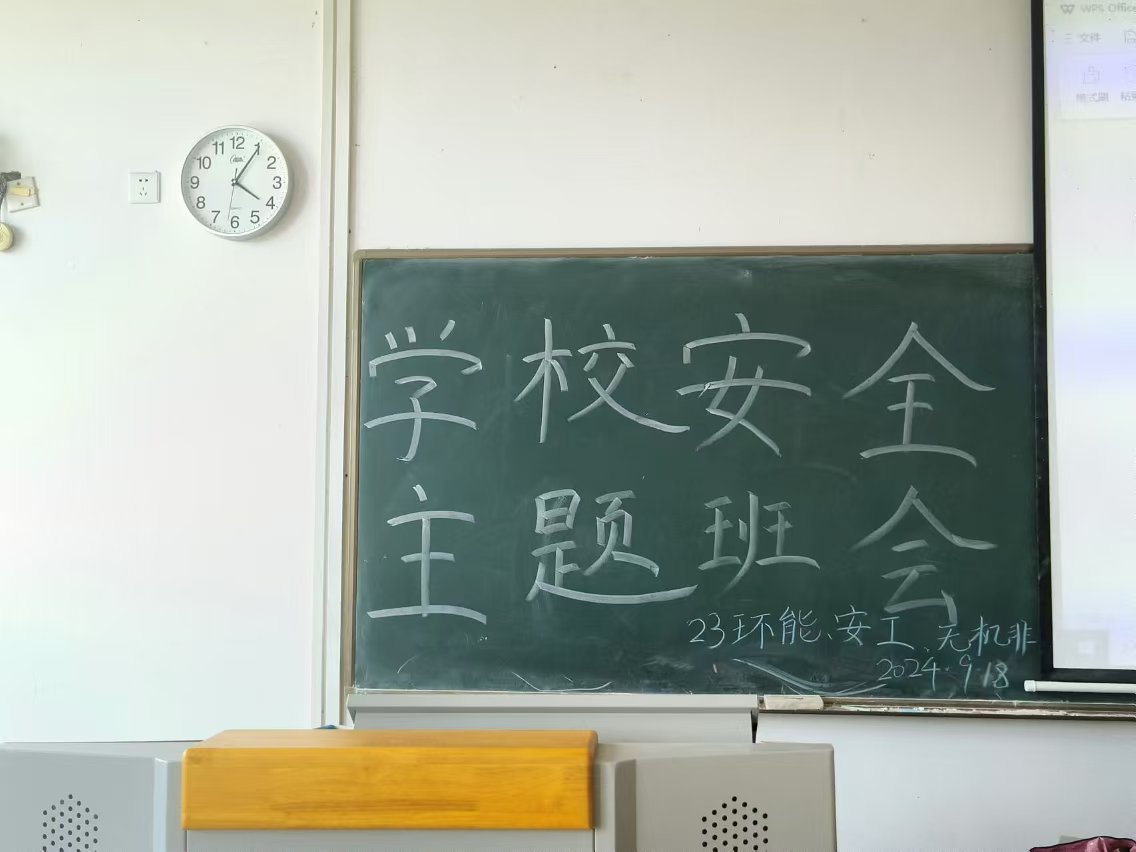 12
1
2
3
4
5
6
7
8
9
10
11
WPS Office
文件
格式刷
学校安全
主题班会
23环能、安工、无机非
2024.9.18